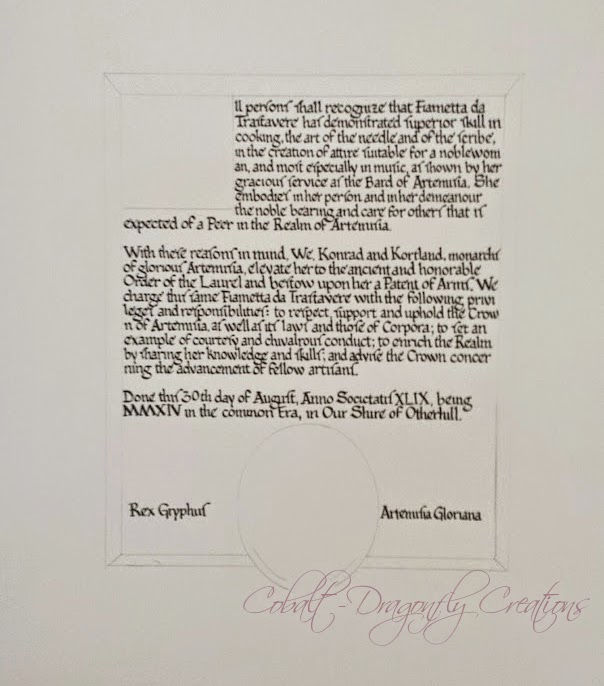 ll persons shall recognize that Fiametta da
Trastavere has demonstrated superior skill in
cooking, the art of the needle and of the scribe,
in the creation of attire suitable for a noblewom
an, and most especially in music, as shown by her
gracious service as the Bard of Artemisia. She
embodies in her person and in her demeanour
the noble bearing and care for others that is
expected of a Peer in the Realm of Artemisia.
With these reasons in mind, We, Konrad and Kortland, monarchs
of glorious Artemisia, elevate her to the ancient and honorable
Order of the Laurel and bestow upon her a Patent of Arms. We
charge this same Fiametta da Trastavere with the following privi
leges and responsibilities: to respect, support and uphold the Crow
n of Artemisia, as well as its laws and those of Corpora; to set an
example of courtesy and chivalrous conduct; to enrich the Realm
by sharing her knowledge and skills; and advise the Crown concer
ning the advancement of fellow artisans.
Done this 30th day of August, Anno Societatis XLIX, being
MMXIV in the common Era, in Our Shire of Otherhill.
Rex Gryphus
Artemisia Gloriana
Cobalt-Dragonfly Creations